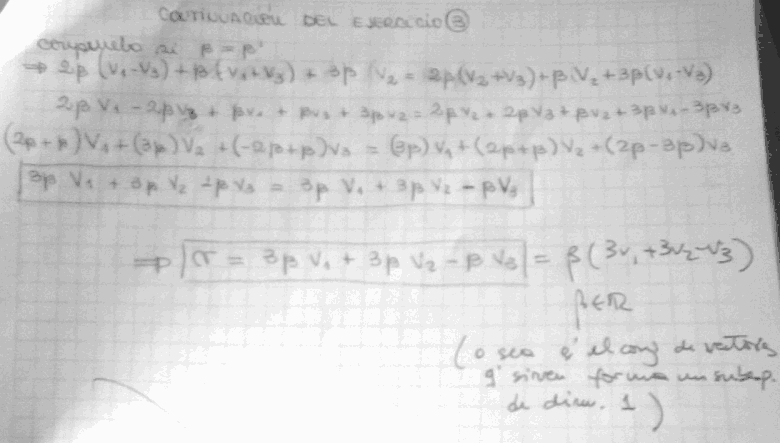 CONTINUACIÓN DEL EJERCICIO ③
compruebo si β = β'
⇒ 2β (V₁-V₃) + β (V₁+V₃) + 3β V₂ = 2β(V₂+V₃) + β V₂ + 3β(V₁-V₃)
2β V₁ - 2β V₃ + βV₁ + βV₃ + 3β V₂ = 2β V₂ + 2β V₃ + β V₂ + 3β V₁ - 3β V₃
(2β + β) V₁ + (3β) V₂ + (-2β + β) V₃ = (3β) V₁ + (2β + β) V₂ + (2β - 3β) V₃
3β V₁ + 3β V₂ - β V₃ = 3β V₁ + 3β V₂ - β V₃
⇒ V = 3β V₁ + 3β V₂ - β V₃ = β (3v₁ + 3v₂ - v₃)
β ∈ ℝ
(o sea q' el conj de vectores
q' sirven forma un subesp.
de dim. 1)